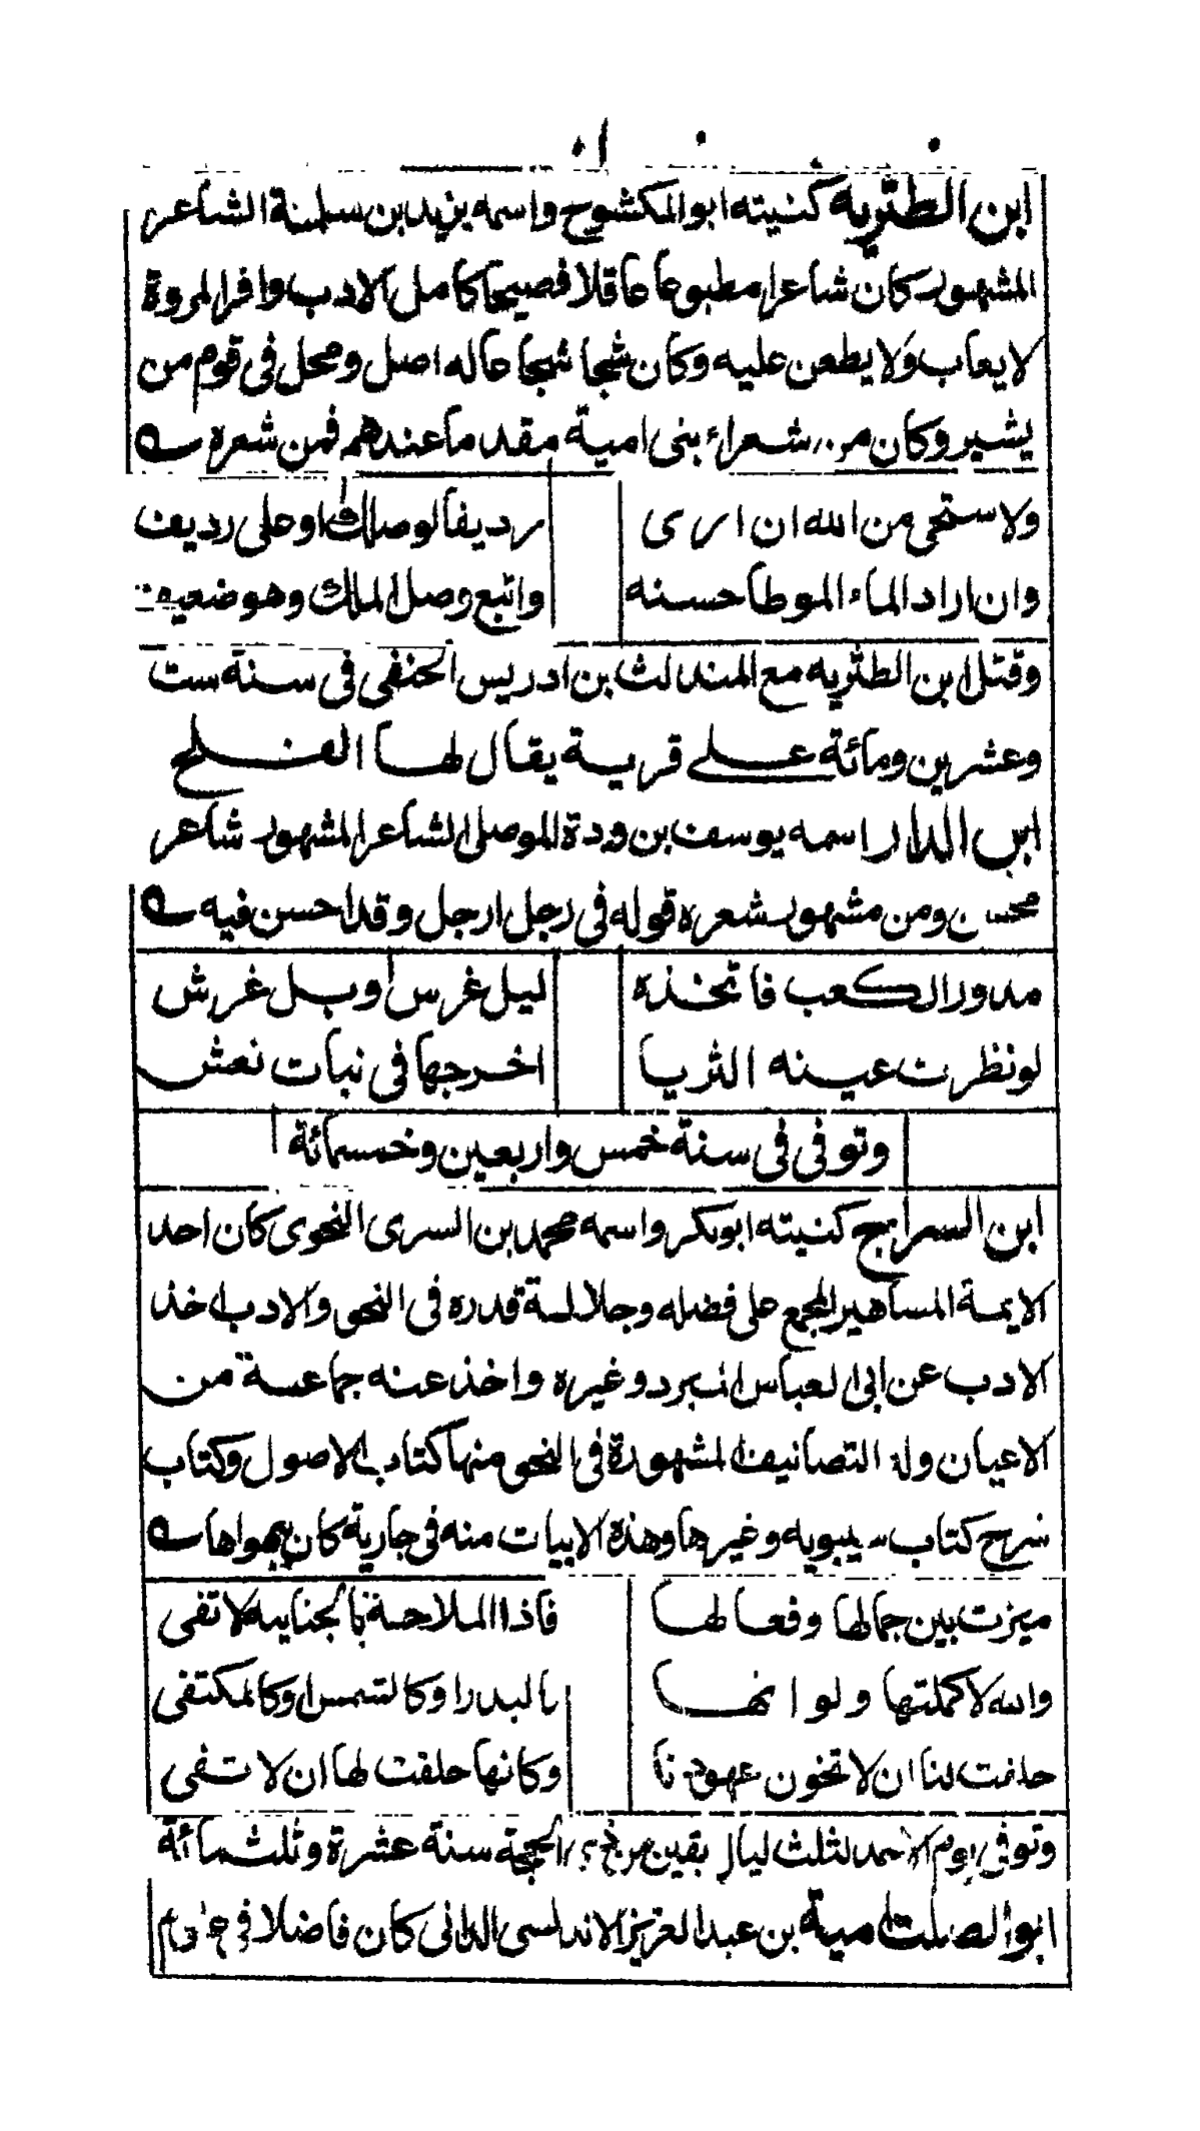 ابن الطثريه كنيته ابو المكشوح واسمه يزيد بن سلمنة الشاعر
المشهور كان شاعرا مطبوعا عاقلا فصيحا كامل الادب وافر المروة
لا يعاب ولا يطعن عليه وكان شجا شجاعا له اصل ومحل فى قوم من
يشير وكان من شعراء بنى امية مقدما عندهم فمن شعره
ولا ستحى من الله ان ارى رديفا لوصلك او على رديف
وان اراد الماء الموطا حسنه واتبع وصل الملك وهو ضعيف
وقتل ابن الطثريه مع المندلث بن ادريس الحنفى فى سنة ست
وعشرين ومائة على قرية يقال لها الفلح
ابن الدار اسمه يوسف بن ودة الموصلى الشاعر المشهور شاعر
محسن ومن مشهور شعره قوله فى رجل ارجل وقد احسن فيه
مدور الكعب فاتخذه ليل غرس اوبل غرش
لو نظرت عينه الثريا اخرجها فى نبات نعش
وتوفى فى سنة خمس واربعين وخمسمائة
ابن السراج كنيته ابوبكر واسمه محمد بن السرى النحوى كان احد
الايمة المساهير المجمع على فضله وجلالة قدره فى النحو والادب اخذ
الادب عن ابى العباس المبرد وغيره واخذ عنه جماعة من
الاعيان وله التصانيف المشهورة فى النحو منها كتاب الاصول وكتاب
شرح كتاب سيبويه وغيرها وهذه الابيات منه فى جارية كان يهواها
ميزت بين جمالها وفعالها فاذا الملاحة بالجنايه لا تفى
والله لا كملتها ولو انها بالبدر او كالشمس او كالمكتفى
حلفت لنا ان لا تخون عهودنا وكانها حلفت لها ان لا تفى
وتوفى يوم الاحد لثلث ليال بقين من ذى الحجة سنة عشرة وثلث مائة
ابو الصلت امية بن عبد العزيز الاندلسى الدانى كان فاضلا فى